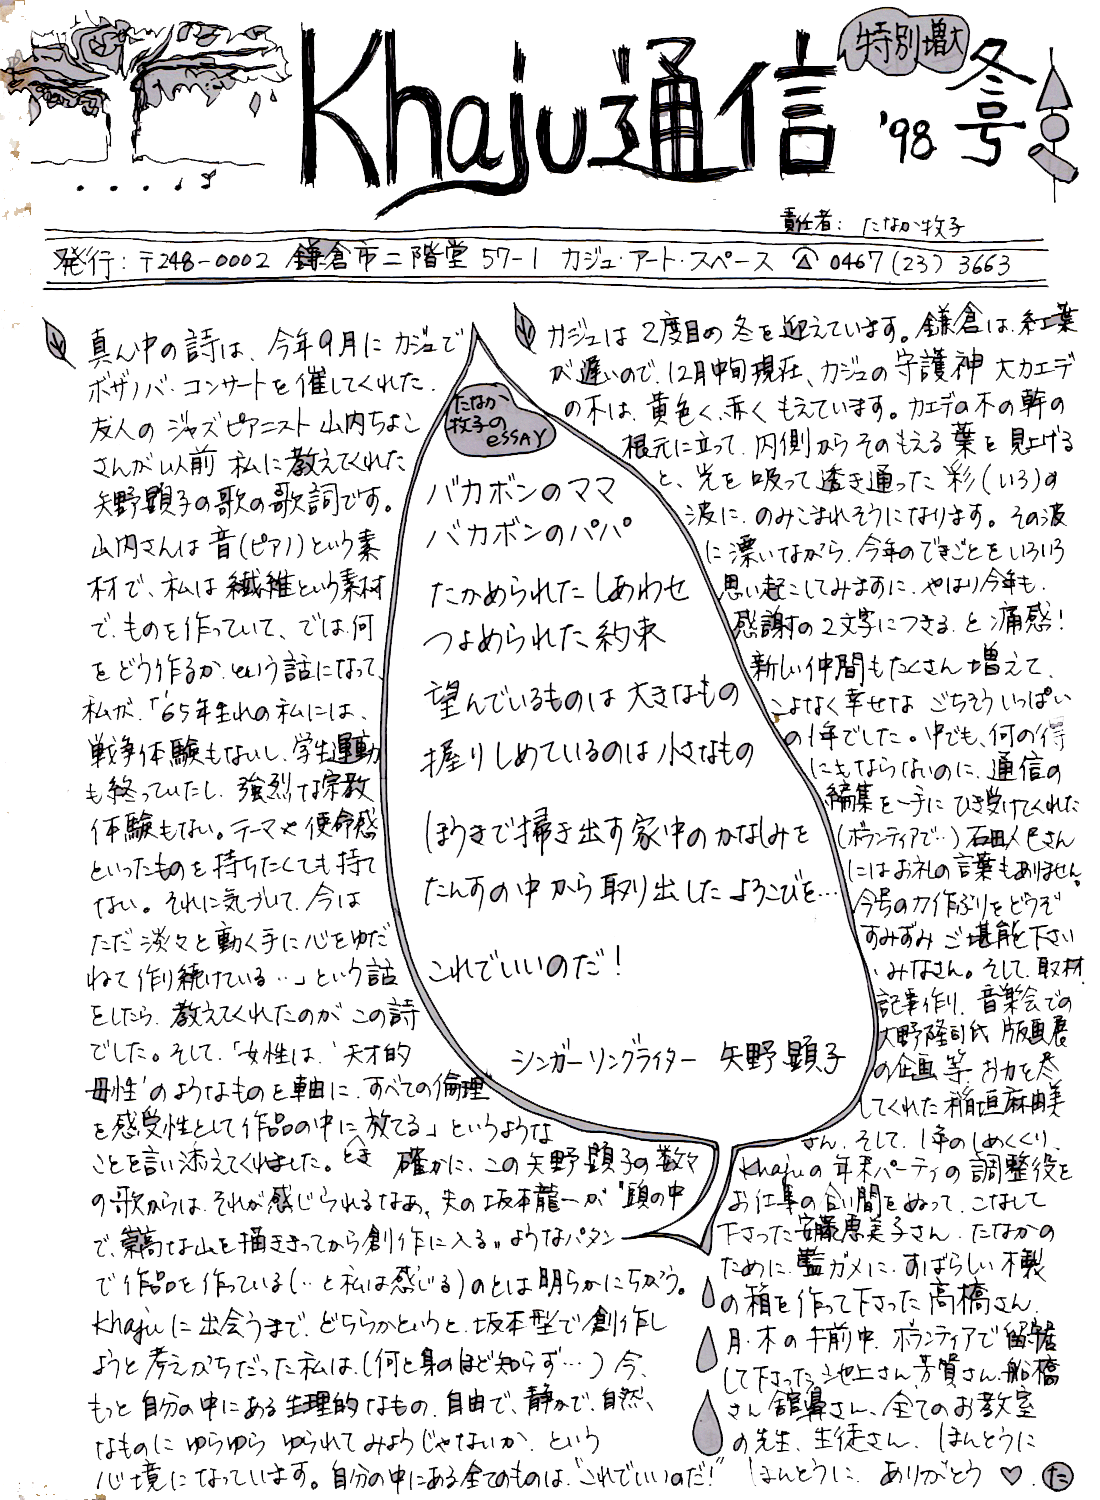 Khaju通信
特別増大
'98 冬号
責任者: たなか牧子
発行:〒248-0002 鎌倉市二階堂57-1 カジュ・アート・スペース ☎ 0467(23)3663
真ん中の詩は、今年9月にカジュで
ボサノバ・コンサートを催してくれた、
友人のジャズピアニスト山内ちよこ
さんが以前私に教えてくれた
矢野顕子の歌の歌詞です。
山内さんは音(ピアノ)という素
材で、私は繊維という素材
で、ものを作っていて、では、何
をどう作るか、という話になって、
私が、「'65年生れの私には、
戦争体験もないし、学生運動
も終っていたし、強烈な宗教
体験もない。テーマや使命感
といったものを持ちたくても持て
ない。それに気づいて、今は
ただ淡々と動く手に心をゆだ
ねて作り続けている…」という話
をしたら、教えてくれたのがこの詩
でした。そして、「女性は、'天才的
母性'のようなものを軸に、すべての倫理
を感受性として作品の中にとき放てる」というような
ことを言い添えてくれました。確かに、この矢野顕子の数々
の歌からは、それが感じられるなあ。夫の坂本龍一が"頭の中
で、崇高な山を描ききってから創作に入る"ようなパタン
で作品を作っている(…と私は感じる)のとは明らかにちがう。
Khajuに出会うまで、どちらかというと、坂本型で創作し
ようと考えがちだった私は、(何と身のほど知らず…)今、
もっと自分の中にある生理的なもの、自由で、静かで、自然、
なものにゆらゆらゆられてみようじゃないか、という
心境になっています。自分の中にある全てのものは、"これでいいのだ!"
たなか
牧子の
ESSAY
バカボンのママ
バカボンのパパ
たかめられたしあわせ
つよめられた約束
望んでいるものは大きなもの
握りしめているのは小さなもの
ほうきで掃き出す家中のかなしみを
たんすの中から取り出したよろこびを…
これでいいのだ!
シンガーソングライター 矢野顕子
カジュは2度目の冬を迎えています。鎌倉は、紅葉
が遅いので、12月中旬現在、カジュの守護神大カエデ
の木は、黄色く、赤くもえています。カエデの木の幹の
根元に立って、内側からそのもえる葉を見上げる
と、光を吸って透き通った彩(いろ)の
波に、のみこまれそうになります。その波
に漂いながら、今年のできごとをいろいろ
思い起こしてみますに、やはり今年も、
感謝の2文字につきる、と痛感!
新しい仲間もたくさん増えて、
こよなく幸せな、ごちそういっぱい
の1年でした。中でも、何の得
にもならないのに、通信の
編集を一手にひき受けてくれた
(ボランティアで…)石田人巳さん
にはお礼の言葉もありません。
今号の力作ぶりをどうぞ
すみずみご堪能下さい
、みなさん。そして、取材、
記事作り、音楽会での
大野隆司氏版画展
の企画等、お力を尽
してくれた稲垣麻由美
さん、そして、1年のしめくくり、
Khajuの年末パーティの調整役を
お仕事の合い間をぬって、こなして
下さった安藤恵美子さん、たなかの
ために、藍ガメに、すばらしい木製
の箱を作って下さった高橋さん、
月・木の午前中、ボランティアで留守居
して下さった、池上さん、芳賀さん、船橋
さん、舘鼻さん、全てのお教室
の先生、生徒さん、ほんとうに
ほんとうに、ありがとう ♡. た